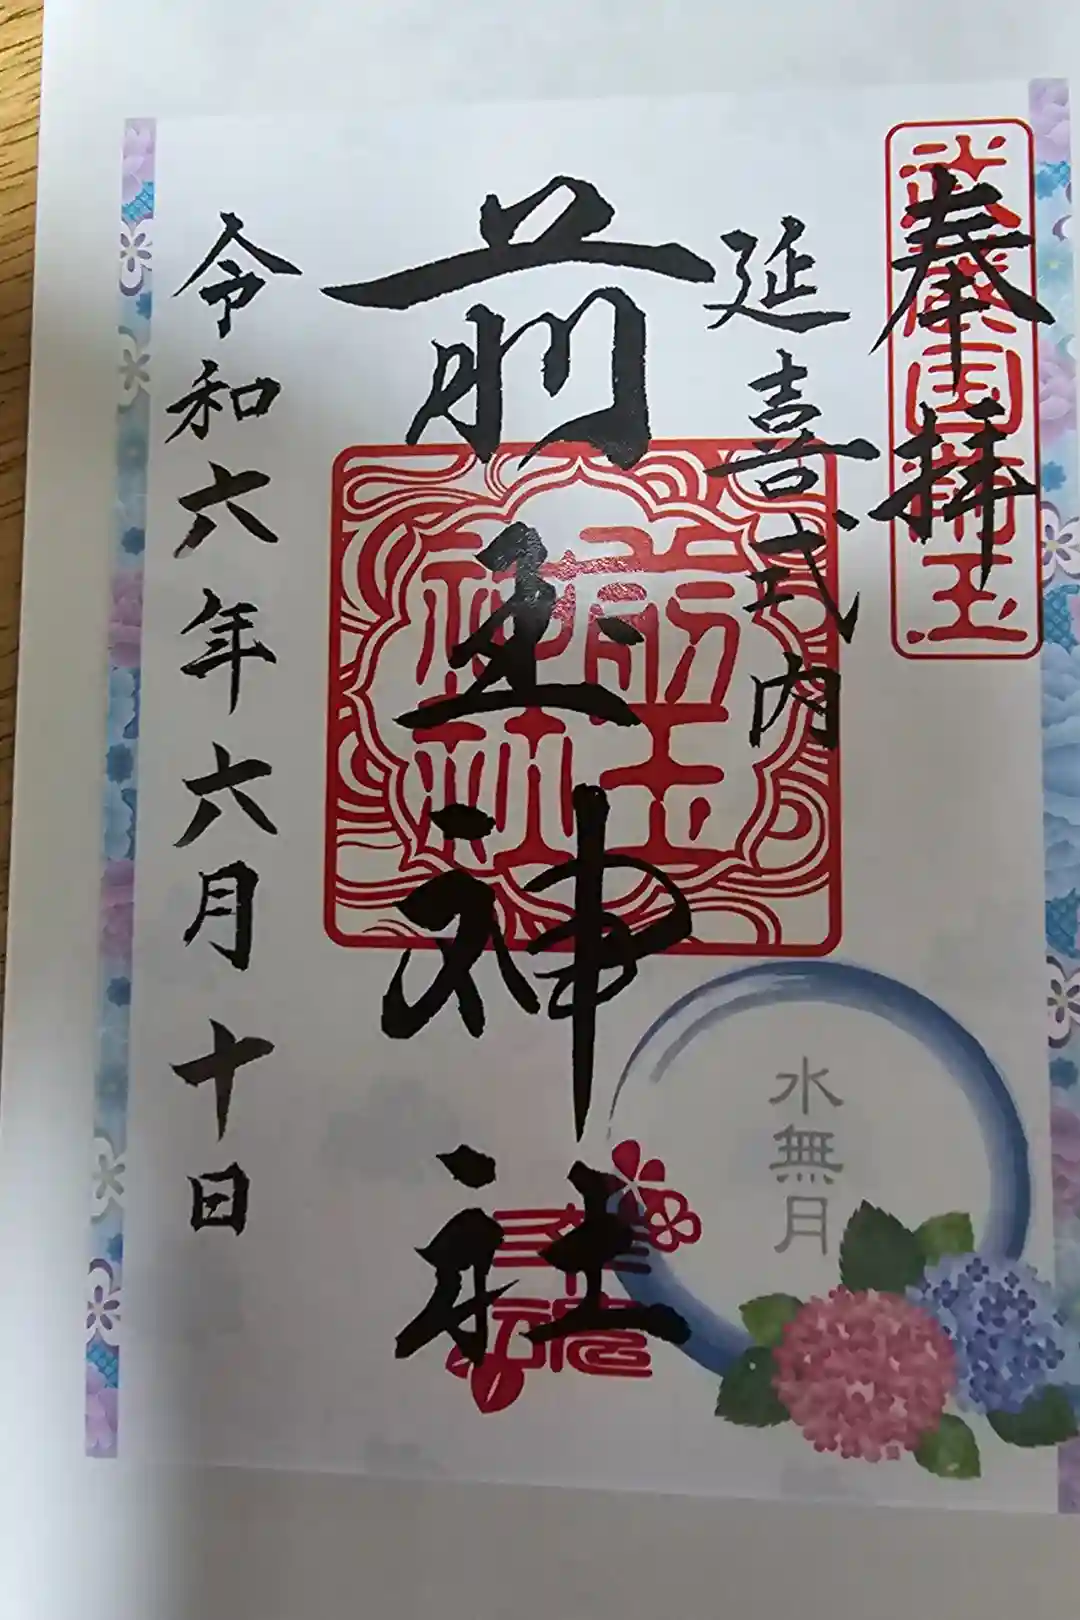 奉拝
武蔵国埼玉
延喜式内
前玉神社
前玉神社
幸魂
水無月
令和六年六月十日